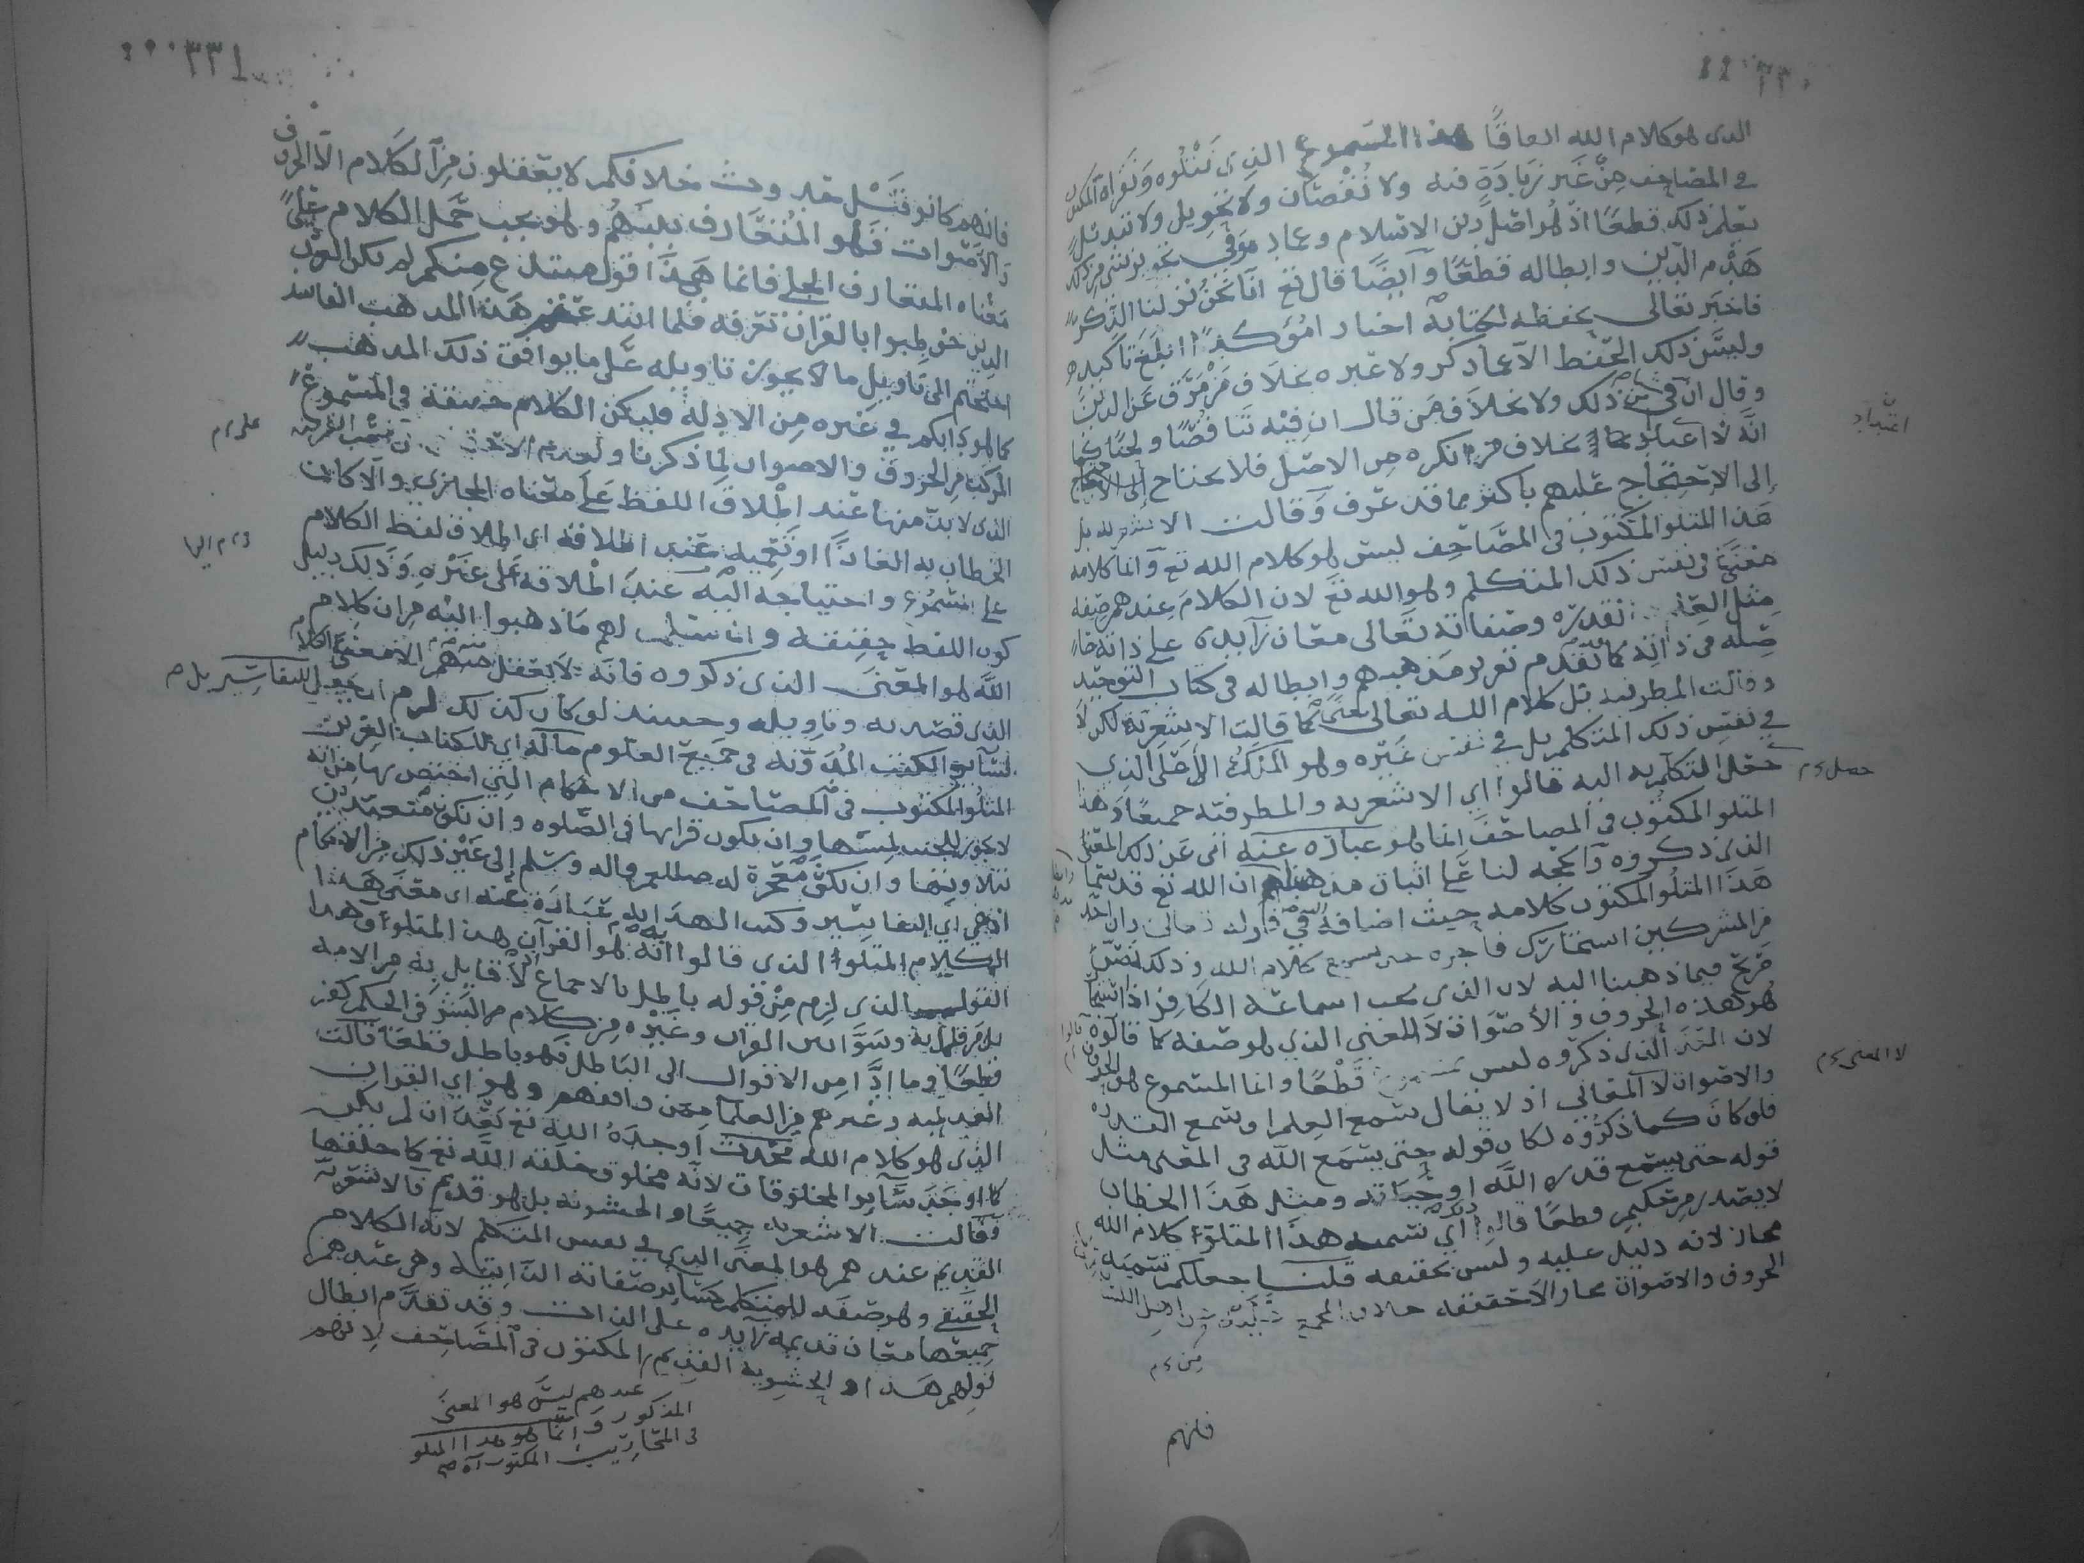 الذي هو كلام الله اتفاقًا هذا المسموع الذي نتلوه ونقراه المكتوب
في المصاحف من غير زيادة فيه ولا نقصان ولا تحويل ولا تبديل
يعلم ذلك قطعًا اذ هو اصل دين الاسلام وعماده تجويز شي من ذلك
هدم الدين وابطاله قطعًا وايضًا قال تع انا نحن نزلنا الذكر
فاخبر تعالى بحفظه لكتابه اخبارا مؤكدًا ابلغ تاكيد
وليس ذلك الحفظ الا عما ذكر ولا عبره بخلاف من مرق عن الدين
وقال ان في ذلك ولا بخلاف من قال ان فيه تناقضًا ولحنًا
انه لا اعتداد بخلاف من انكره من الاصل فلا يحتاج
إلى الاحتجاج عليهم باكثر مما قد عرف وقالت الاشعريه بل
هذا المتلو المكتوب في المصاحف ليس هو كلام الله تع وانما كلامه
معنى في نفس ذلك المتكلم وهو الله تع لان الكلام عندهم صفه
مثل القدره وصفاته تعالى معان زايده على ذاته
في ذاته كما تقدم تقرير مذهبهم وابطاله في كتاب التوحيد
وقالت المطرفيه بل كلام الله تعالى معنى كما قالت الاشعريه لكن لا
في نفس ذلك المتكلم بل في نفس غيره وهو الملك الاعلى الذي
جعل التكلم به اليه قالوا اي الاشعريه والمطرفيه جميعًا وهذا
المتلو المكتوب في المصاحف انما هو عبارة عنه اي عن ذلك المعنى
الذي ذكروه والحجه لنا على اثبات مذهبنا ان الله تع قد سمى
هذا المتلو المكتوب كلامه حيث اضافه اليه في قوله تعالى وان احد
من المشركين استجارك فاجره حتى يسمع كلام الله وذلك نص
صريح فيما ذهبنا اليه لان الذي يجب اسماعه الكافر اذا
هو هذه الحروف والاصوات لا المعنى الذي هو صفه كما قالوه
لان المعنى الذي ذكروه ليس قطعًا وانما المسموع هو الحروف
والاصوات لا المعاني اذ لا يقال سمع العلم او سمع القدره
فلو كان كما ذكروه لكان قوله حتى يسمع كلام الله في المعنى مثل
قوله حتى يسمع قدرة الله او حياته ومثل هذا الخطاب
لا يصدر من حكيم قطعًا قالوا اي تسميه هذا المتلو كلام الله
مجاز لانه دليل عليه وليس بحقيقه قلنا جعلكم تسميه
الحروف والاصوات مجازا لا حقيقه خلاف المجمع عليه من اهل اللغه
فانهم
اعتداد
حصل
لا المعنى
من
فانهم كانوا قبل حدوث خلافكم لا يعقلون من الكلام الا الحروف
والاصوات فهو المتعارف بينهم وهو يجب حمل الكلام على
معناه المتعارف الجلي فانما هذا قول مبتدع منكم لم يكن العرب
الذين خوطبوا بالقران تعرفه فلما ابتدعتم هذا المذهب الفاسد
احتجتم الى تاويل ما لا يجوز تاويله على ما يوافق ذلك المذهب
كما هو دابكم في غيره من الادله فليكن الكلام حقيقة في المسموع
المركب من الحروف والاصوات لما ذكرنا ولعدم الافتقار نصب القرينه
الذي لا بد منها عند اطلاق اللفظ على معناه المجازي والا كان
الخطاب به الغازًا او تعميه عند اطلاقه اي اطلاق لفظ الكلام
على المسموع واحتياجه اليه عند اطلاقه على غيره وذلك دليل
كون اللفظ حقيقه وان سلم لهم ما ذهبوا اليه من ان كلام
الله هو المعنى الذي ذكروه فانه لا يعقل الا معنى الكلام
الذي قصد به وتاويله وحينيذ لو كان كذلك لزم ان يجعل للتفاسير بل
لساير الكتب المدونه في جميع العلوم ما له اي للكتاب العزيز
المتلو المكتوب في المصاحف من الاحكام التي اختص بها من انه
لا يجوز للجنب لمسها وان يكون قراتها في الصلوه وان نكون متعبدين
بتلاوتها وان تكون معجزة له صلعم واله وسلم إلى غير ذلك من الاحكام
اذ هي اي التفاسير وكتب الهدايه عبارة عنه اي معنى هذا
الكلام المتلو الذي قالوا انه هو القرآن هذا المتلو وهذا
القول الذي لزم من قوله باطل بالاجماع لا قايل به من الامه
بل من قال به وسوَّا بين القران وغيره من كلام البشر في الحكم كفر
قطعًا وما ادَّا من الاقوال الى الباطل فهو باطل قطعًا قالت
العدليه وغيرهم من العلما ممن وافقهم وهو اي القران
الذي هو كلام الله محدث اوجده الله تع بعد ان لم يكن
كما اوجد ساير المخلوقات لانه مخلوق خلقه الله تع كما خلقها
وقالت الاشعريه جميعًا والحشويه بل هو قديم فالاشعريه
القديم عندهم هو المعنى الذي في نفس المتكلم لانه الكلام
الحقيقي وهو صفه للمتكلم كساير صفاته الذاتيه وهي عندهم
جميعها معان قديمه زايده على الذات وقد تقدم ابطال
قولهم هذا والحشوية القديم المكتوب في المصاحف لانهم
عندهم ليس هو المعنى
المذكور وانما هو هذا المتلو
في المحاريب المكتوب